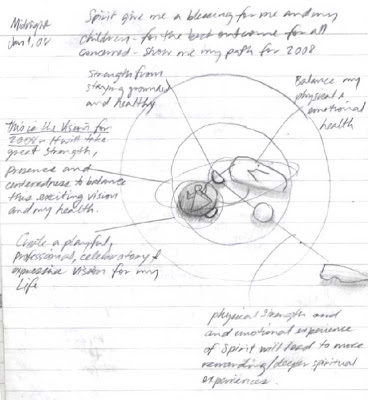 Midnight
Jan 1, 08
Spirit give me a blessing for me and my
children - for the best outcome for all
concerned - show me my path for 2008
Strength from
staying grounded
and healthy
Balance my
physical &
emotional
health
This is the Vision for
2008 - It will take
great strength,
presence and
centeredness to balance
this exciting vision
and my health.
Create a playful,
professional, celebratory &
expressive vision for my
Life
physical Strength and
and emotional experience
of Spirit will lead to more
rewarding/deeper spiritual
experiences.